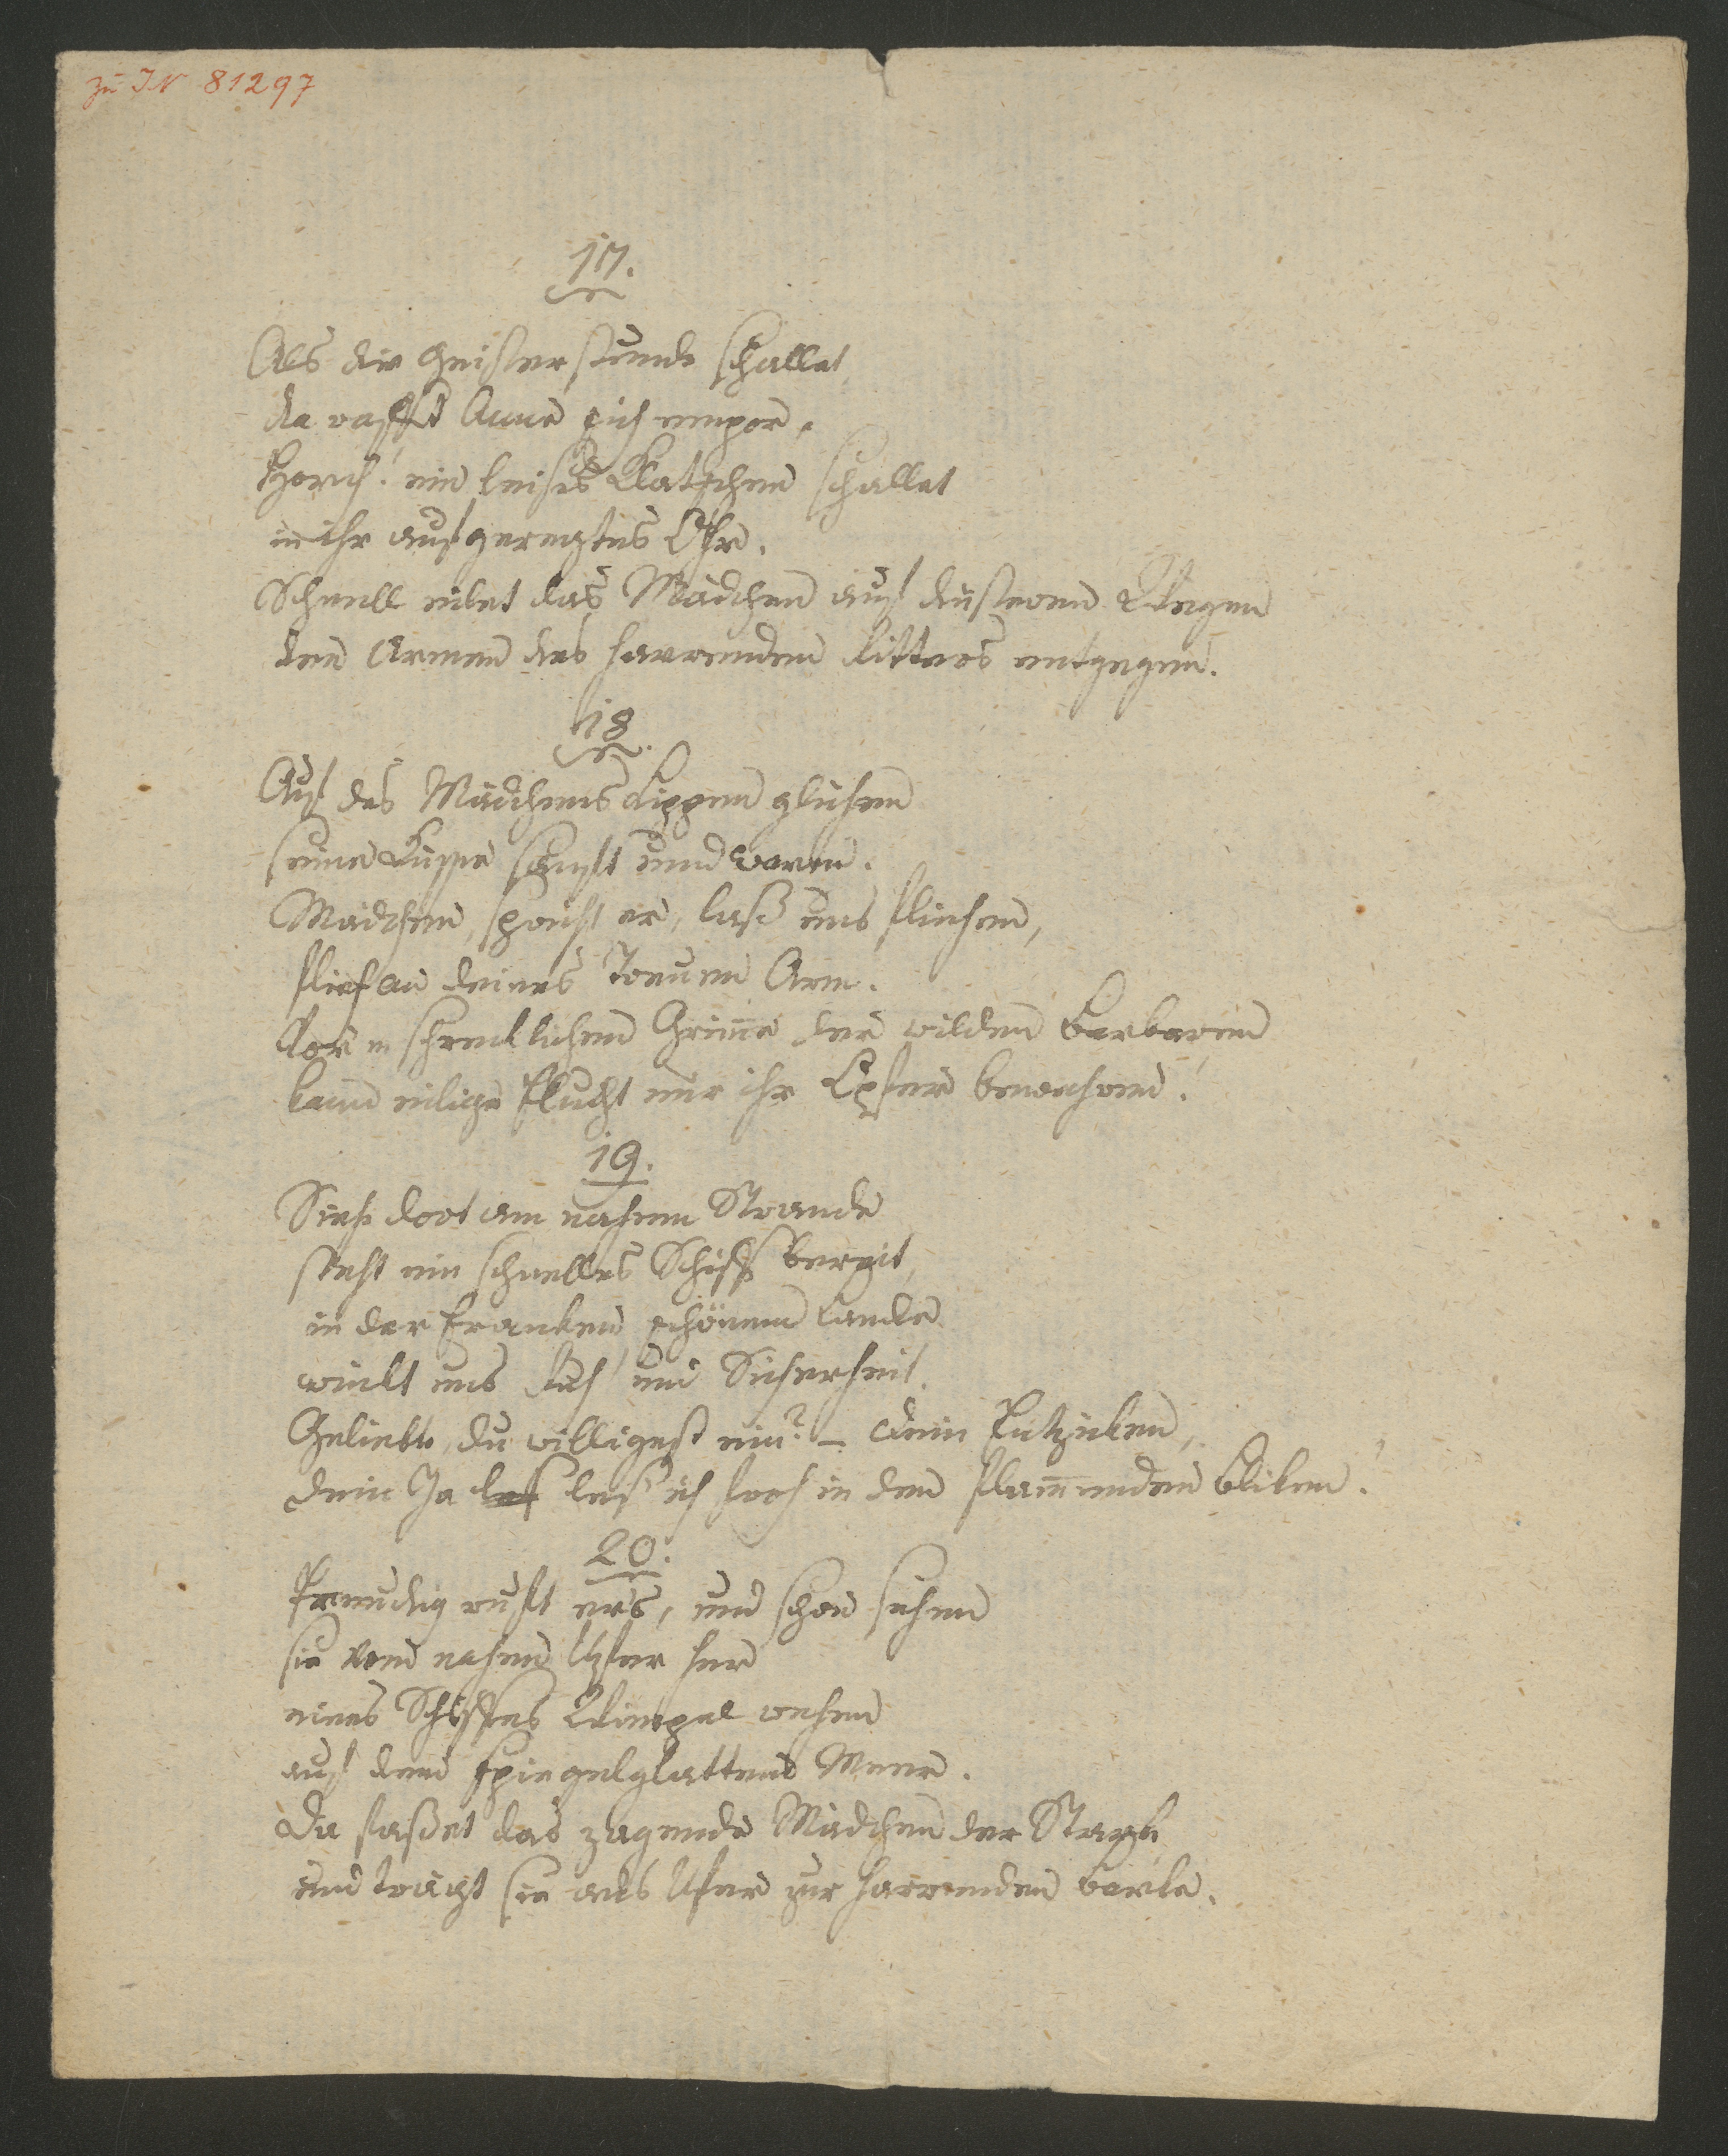 zu IN 81297
17.
Als die Geisterstunde schallet
da raffet Anne sich empor.
Horch! ein leises Klatschen schallet
in ihr aufgeregtes Ohr.
Schnell eilet das Mädchen auf düsteren Wegen
den Armen des harrenden Ritters entgegen.
18.
Auf des Mädchens Lippen glühen
seine Küsse sanft und warm.
Mädchen, spricht er, laß uns fliehen,
flieh an deines Treuen Arm.
Vor m schrecklichen Grim̅e der wilden Barbaren
kann eilige Flucht nur ihr Opfer bewahren!
19.
Sieh dort am nahen Strande
steht ein schnelles Schiff bereit,
in der Franken schönem Lande
winkt uns Ruh' und Sicherheit.
Geliebte, du willigest ein? – Dein Entzüken,
dein Ja les' ich froh in den flam̅enden Bliken!
20.
Freudig ruft ers, und schon sehen
sie vom nahen Ufer her
eines Schiffes Wimpel wehen
auf dem spiegelglatten Meer.
Da faßet das zagende Mädchen der Starke
und trägt sie ans Ufer zur harrenden Barke.